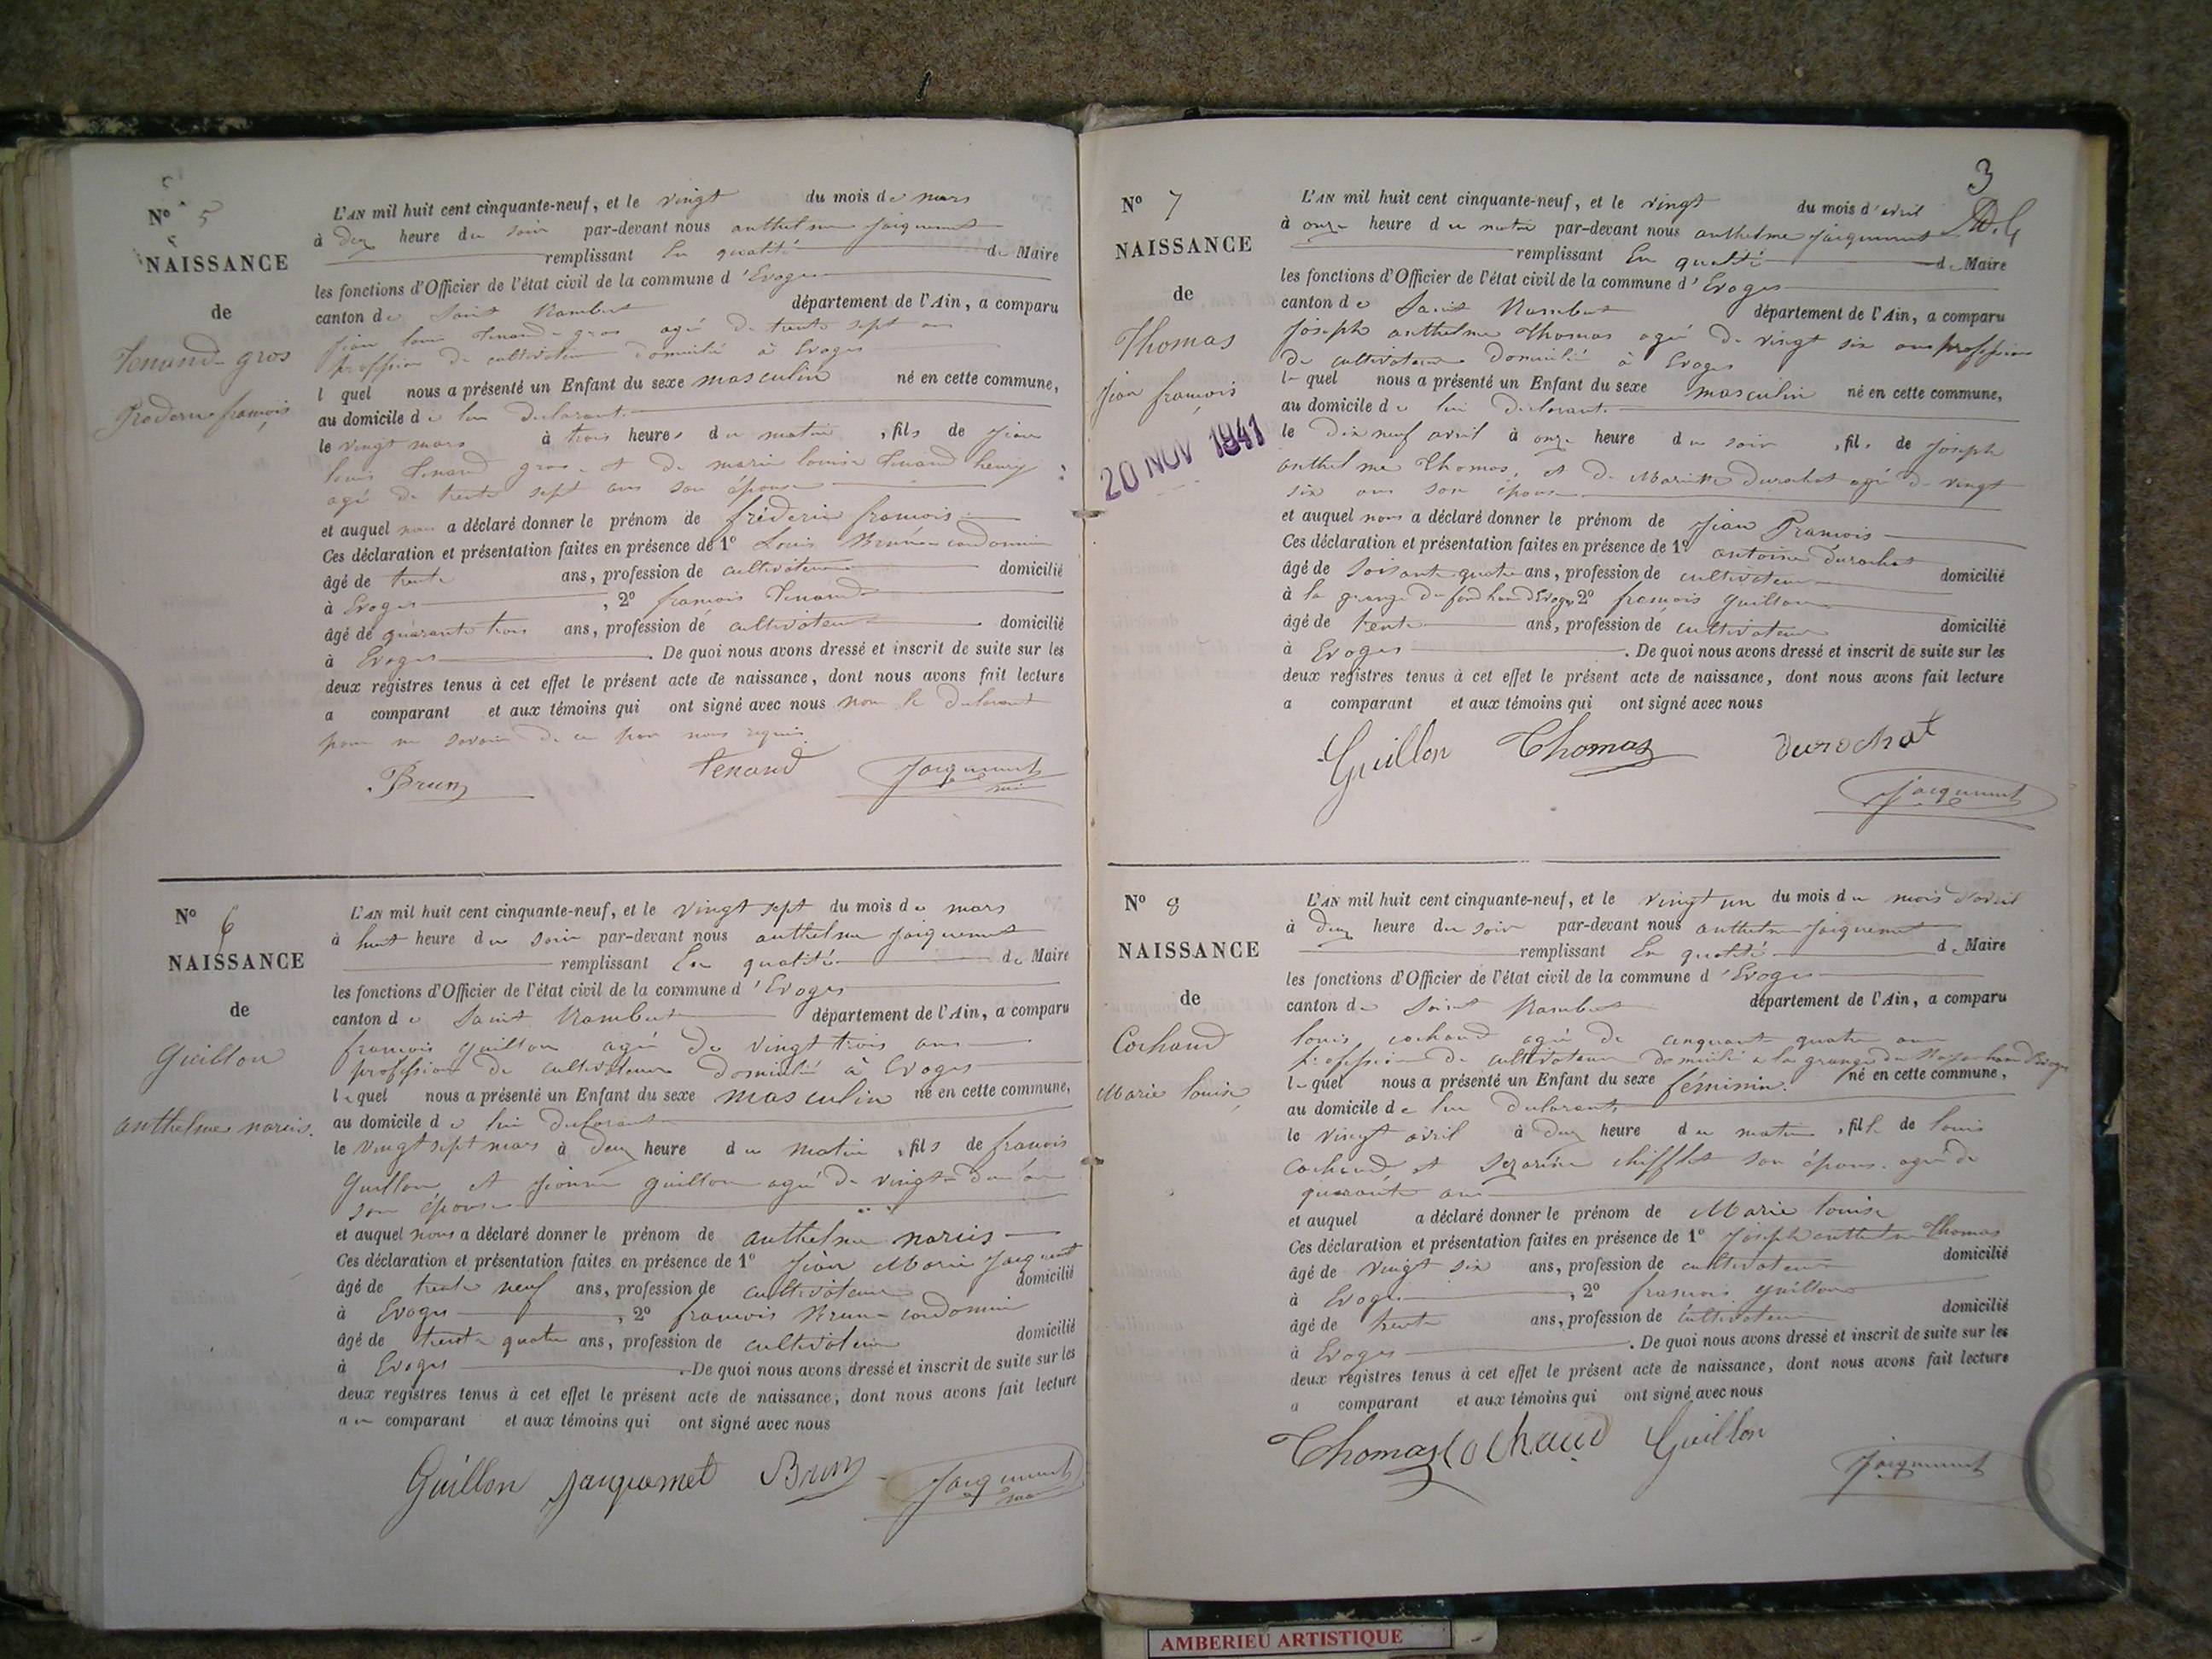 N° 5
NAISSANCE
de
Tenand-gros
frederic françois
L'AN mil huit cent cinquante-neuf, et le vingt du mois de mars
à deux heure du soir par-devant nous anthelme Jacquemet
remplissant En qualité de Maire
les fonctions d'Officier de l'état civil de la commune d'Evoges
canton de Saint Rambert département de l'Ain, a comparu
jean louis Tenand-gros agé de trente sept ans
proffession de cultivateur domicilié à Evoges
lequel nous a présenté un Enfant du sexe masculin né en cette commune,
au domicile de lui déclarant
le vingt mars à trois heures du matin, fils de jean
louis Tenand gros et de marie louise Tenand henry
agé de trente sept ans son épouse
et auquel nous a déclaré donner le prénom de fréderic francois
Ces déclaration et présentation faites en présence de 1° Louis Brun-condomin
âgé de trente ans, profession de cultivateur domicilié
à Evoges, 2° francois Tenand
âgé de quarante trois ans, profession de cultivateur domicilié
à Evoges. De quoi nous avons dressé et inscrit de suite sur les
deux registres tenus à cet effet le présent acte de naissance, dont nous avons fait lecture
a comparant et aux témoins qui ont signé avec nous non le déclarant
pour ne savoir de ce par nous requis
Brun Tenand Jacquemet
N° 6
NAISSANCE
de
Guillon
anthelme narcis.
L'AN mil huit cent cinquante-neuf, et le vingt sept du mois de mars
à huit heure du soir par-devant nous anthelme Jacquemet
remplissant En qualité de Maire
les fonctions d'Officier de l'état civil de la commune d'Evoges
canton de Saint Rambert département de l'Ain, a comparu
francois guillon agé de vingt trois ans
proffession de cultivateur domicilié à Evoges
lequel nous a présenté un Enfant du sexe masculin né en cette commune,
au domicile de lui déclarant
le vingt sept mars à deux heure du matin, fils de francois
Guillon et guillon agé de vingt
son épouse
et auquel nous a déclaré donner le prénom de anthelme narcis
Ces déclaration et présentation faites en présence de 1° jean Marie Jacquemet
âgé de trente neuf ans, profession de cultivateur domicilié
à Evoges, 2° francois Brun-condomin
âgé de trente quatre ans, profession de cultivateur domicilié
à Evoges. De quoi nous avons dressé et inscrit de suite sur les
deux registres tenus à cet effet le présent acte de naissance, dont nous avons fait lecture
au comparant et aux témoins qui ont signé avec nous
Guillon Jacquemet Brun Jacquemet
3
N° 7
NAISSANCE
de
Thomas
jean françois
20 NOV 1941
L'AN mil huit cent cinquante-neuf, et le vingt du mois d'avril
à onze heure du matin par-devant nous anthelme Jacquemet
remplissant En qualité de Maire
les fonctions d'Officier de l'état civil de la commune d'Evoges
canton de Saint Rambert département de l'Ain, a comparu
joseph anthelme Thomas agé de vingt six ans proffession
de cultivateur domicilié à Evoges
lequel nous a présenté un Enfant du sexe masculin né en cette commune,
au domicile de lui déclarant
le dix neuf avril à onze heure du soir, fils de joseph
anthelme Thomas, et de Durochat agé de vingt
six ans son épouse
et auquel nous a déclaré donner le prénom de jean Francois
Ces déclaration et présentation faites en présence de 1° antoine Durochat
âgé de soisante quatre ans, profession de cultivateur domicilié
à la grange d'Evoges 2° francois guillon
âgé de trente ans, profession de cultivateur domicilié
à Evoges. De quoi nous avons dressé et inscrit de suite sur les
deux registres tenus à cet effet le présent acte de naissance, dont nous avons fait lecture
a comparant et aux témoins qui ont signé avec nous
Guillon Thomas durochat
Jacquemet
N° 8
NAISSANCE
de
Cochaud
Marie louise
L'AN mil huit cent cinquante-neuf, et le vingt un du mois du mois d'avril
à deux heure du soir par-devant nous anthelme Jacquemet
remplissant En qualité de Maire
les fonctions d'Officier de l'état civil de la commune d'Evoges
canton de Saint Rambert département de l'Ain, a comparu
louis cochaud agé de cinquante quatre ans
profession de cultivateur domicilié a la grange
lequel nous a présenté un Enfant du sexe féminin. né en cette commune,
au domicile de lui déclarant
le vingt avril à deux heure du matin, fille de louis
Cochaud et chifflet son épouse agé de
quarante ans
et auquel a déclaré donner le prénom de Marie louise
Ces déclaration et présentation faites en présence de 1° joseph anthelme Thomas
âgé de vingt six ans, profession de cultivateur domicilié
à Evoges, 2° francois guillon
âgé de trente ans, profession de cultivateur domicilié
à Evoges. De quoi nous avons dressé et inscrit de suite sur les
deux registres tenus à cet effet le présent acte de naissance, dont nous avons fait lecture
a comparant et aux témoins qui ont signé avec nous
Thomas Cochaud Guillon
Jacquemet
AMBERIEU ARTISTIQUE